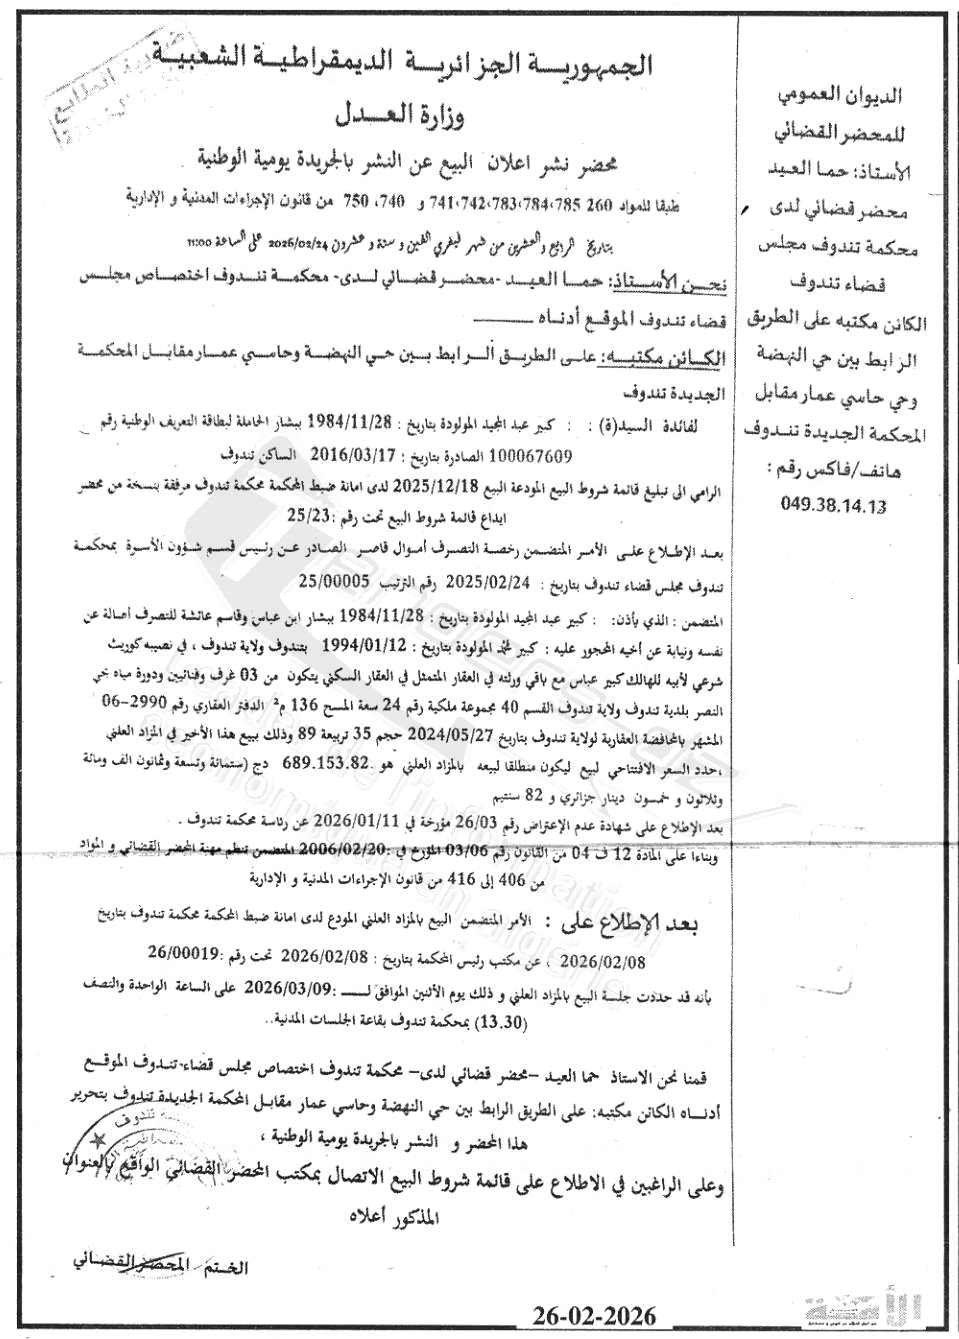 الجمهورية الجزائرية الديمقراطية الشعبية
وزارة العدل
محضر نشر اعلان البيع عن النشر بالجريدة يومية الوطنية
طبقا للمواد 260 741،742،783،784،785 و 740، 750 من قانون الإجراءات المدنية و الإدارية
بتاريخ الرابع والعشرين من شهر فيفري الفين و ستة و عشرون 2026/02/24 على الساعة 11:00
نحن الأستاذ: حما العيد -محضر قضائي لدى- محكمة تندوف اختصاص مجلس
قضاء تندوف الموقع أدناه
الكائن مكتبه: على الطريق الرابط بين حي النهضة وحاسي عمار مقابل المحكمة
الجديدة تندوف
لفائدة السيد(ة) : : كبير عبد المجيد المولودة بتاريخ : 1984/11/28 ببشار الحاملة لبطاقة التعريف الوطنية رقم
100067609 الصادرة بتاريخ : 2016/03/17 الساكن تندوف
الرامي الى تبليغ قائمة شروط البيع المودعة البيع 2025/12/18 لدى امانة ضبط المحكمة محكمة تندوف مرفقة بنسخة من محضر
ايداع قائمة شروط البيع تحت رقم :25/23
بعد الإطلاع على الأمر المتضمن رخصة التصرف أموال قاصر الصادر عن رئيس قسم شؤون الأسرة بمحكمة
تندوف مجلس قضاء تندوف بتاريخ : 2025/02/24 رقم الترتيب 25/00005
المتضمن : الذي يأذن: : كبير عبد المجيد المولودة بتاريخ : 1984/11/28 ببشار ابن عباس وقاسم عائشة للتصرف أصالة عن
نفسه ونيابة عن أخيه المحجور عليه : كبير محمد المولودة بتاريخ : 1994/01/12 بتندوف ولاية تندوف ، في نصيبه كوريث
شرعي لأبيه للهالك كبير عباس مع باقي ورثته في العقار المتمثل في العقار السكني يتكون من 03 غرف وفنائين ودورة مياه بحي
النصر بلدية تندوف ولاية تندوف القسم 40 مجموعة ملكية رقم 24 سعة المسح 136 م² الدفتر العقاري رقم 2990-06
المشهر بالمحافضة العقارية لولاية تندوف بتاريخ 2024/05/27 حجم 35 تربيعة 89 وذلك ببيع هذا الأخير في المزاد العلني
،حدد السعر الافتتاحي لبيع ليكون منطلقا لبيعه بالمزاد العلني هو .689.153.82 دج (ستمائة وتسعة وثمانون الف ومائة
وثلاثون و خمسون دينار جزائري و 82 سنتيم
بعد الإطلاع على شهادة عدم الإعتراض رقم 26/03 مؤرخة في 2026/01/11 عن رئاسة محكمة تندوف .
وبناءا على المادة 12 ف 04 من القانون رقم 03/06 المؤرخ في :2006/02/20 المتضمن تنظم مهنة المحضر القضائي و المواد
من 406 إلى 416 من قانون الإجراءات المدنية و الإدارية
بعد الإطلاع على : الأمر المتضمن البيع بالمزاد العلني المودع لدى امانة ضبط المحكمة محكمة تندوف بتاريخ
2026/02/08 ، عن مكتب رئيس المحكمة بتاريخ : 2026/02/08 تحت رقم :26/00019
بأنه قد حددت جلسة البيع بالمزاد العلني و ذلك يوم الأثنين الموافق لـــ :2026/03/09 على الساعة الواحدة والنصف
(13.30) بمحكمة تندوف بقاعة الجلسات المدنية..
قمنا نحن الاستاذ حما العيد –محضر قضائي لدى– محكمة تندوف اختصاص مجلس قضاء تندوف الموقع
أدناه الكائن مكتبه: على الطريق الرابط بين حي النهضة وحاسي عمار مقابل المحكمة الجديدة تندوف بتحرير
هذا المحضر و النشر بالجريدة يومية الوطنية ،
وعلى الراغبين في الاطلاع على قائمة شروط البيع الاتصال بمكتب المحضر القضائي الواقع بالعنوان
المذكور أعلاه
الختم المحضر القضائي
الديوان العمومي
للمحضر القضائي
الأستاذ: حما العيد
محضر قضائي لدى
محكمة تندوف مجلس
قضاء تندوف
الكائن مكتبه على الطريق
الرابط بين حي النهضة
وحي حاسي عمار مقابل
المحكمة الجديدة تندوف
هاتف/فاكس رقم :
049.38.14.13
26-02-2026
الأمة